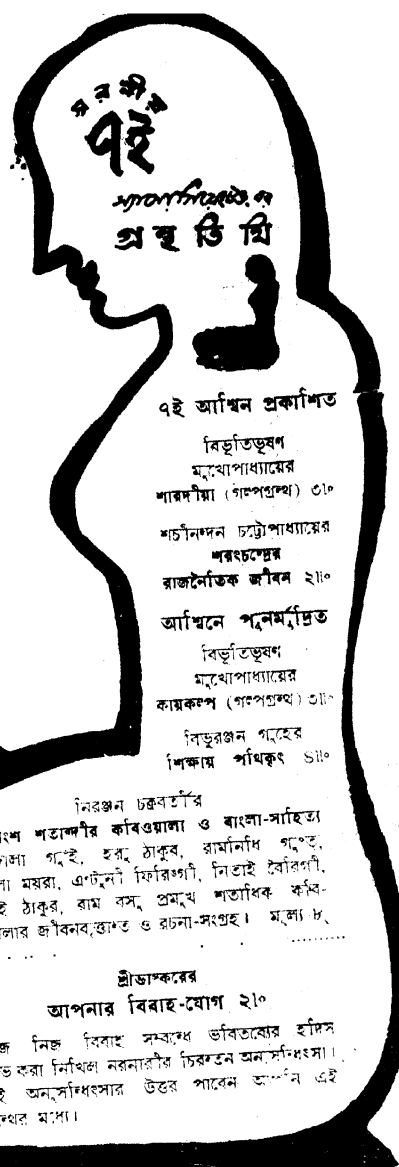 স্মরণীয়
৭ই
অ্যাসোসিয়েটেড-এর
গ্রন্থতিথি
৭ই আশ্বিন প্রকাশিত
বিভূতিভূষণ
মুখোপাধ্যায়ের
শারদীয়া (গল্পগ্রন্থ) ৩৷০
শচীনন্দন চট্টোপাধ্যায়ের
শরৎচন্দ্রের
রাজনৈতিক জীবন ২॥০
আশ্বিনে পুনর্মুদ্রিত
বিভূতিভূষণ
মুখোপাধ্যায়ের
কায়কল্প (গল্পগ্রন্থ) ৩॥০
বিভুরঞ্জন গুহের
শিক্ষায় পথিকৃৎ ৪॥০
নিরঞ্জন চক্রবর্তীর
শতাব্দীর কবিওয়ালা ও বাংলা-সাহিত্য
গুঁই, হরু ঠাকুর, রামনিধি গুপ্ত,
ময়রা, এণ্টুনী ফিরিঙ্গী, নিতাই বৈরাগী,
ঠাকুর, রাম বসু প্রমুখ শতাধিক কবি-
জীবনবৃত্তান্ত ও রচনা-সংগ্রহ। মূল্য ৮৲
শ্রীভাস্করের
আপনার বিবাহ-যোগ ২৷০
নিজ বিবাহ সম্বন্ধে ভবিতব্যের হদিস
করা নিখিল নরনারীর চিরন্তন অনুসন্ধিৎসা।
অনুসন্ধিৎসার উত্তর পাবেন এই
মধ্যে।